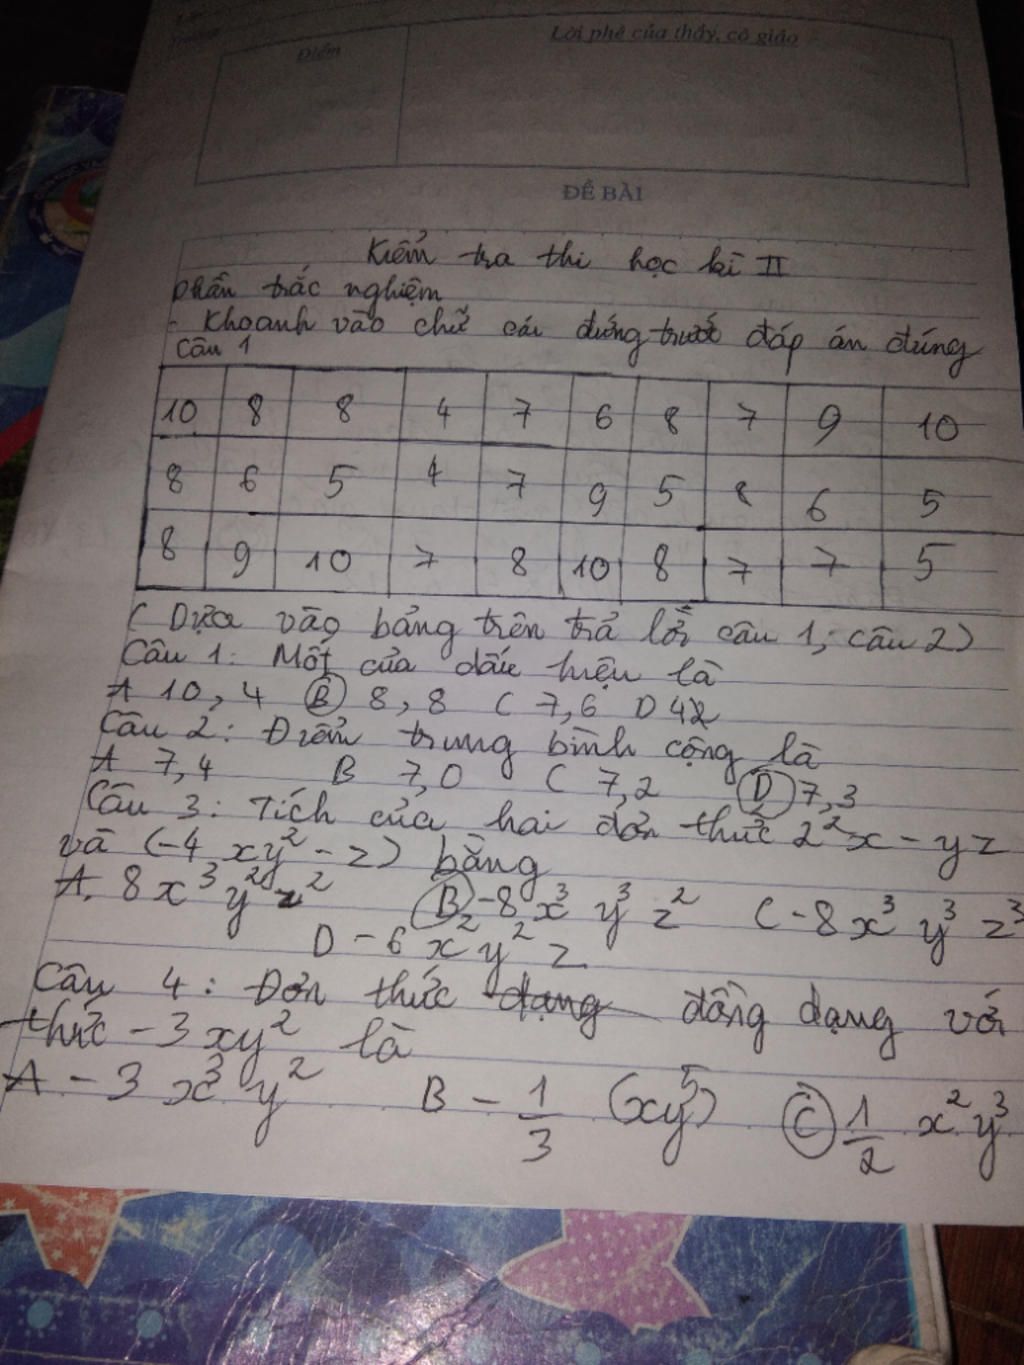 Điểm
Lời phê của thầy, cô giáo
ĐỀ BÀI
Kiểm tra thi học kì II
phần trắc nghiệm
- Khoanh vào chữ cái đứng trước đáp án đúng
Câu 1
10 8 8 4 7 6 8 7 9 10
8 6 5 4 7 9 5 8 6 5
8 9 10 7 8 10 8 7 7 5
( Dựa vào bảng trên trả lời câu 1; câu 2)
Câu 1: Mốt của dấu hiệu là
A 10, 4 B 8, 8 C 7, 6 D 42
Câu 2: Điểm trung bình cộng là
A 7,4 B 7,0 C 7,2 D 7,3
Câu 3: Tích của hai đơn thức 2²x - yz
và (-4 xy² - z) bằng
A. 8x³y²z² B -8x³y³z² C -8x³y³z³
D - 6x²y²z
Câu 4: Đơn thức dạng đồng dạng với
thức -3xy² là
A -3x³y² B -1/3 (xy⁵) C 1/2 x²y³